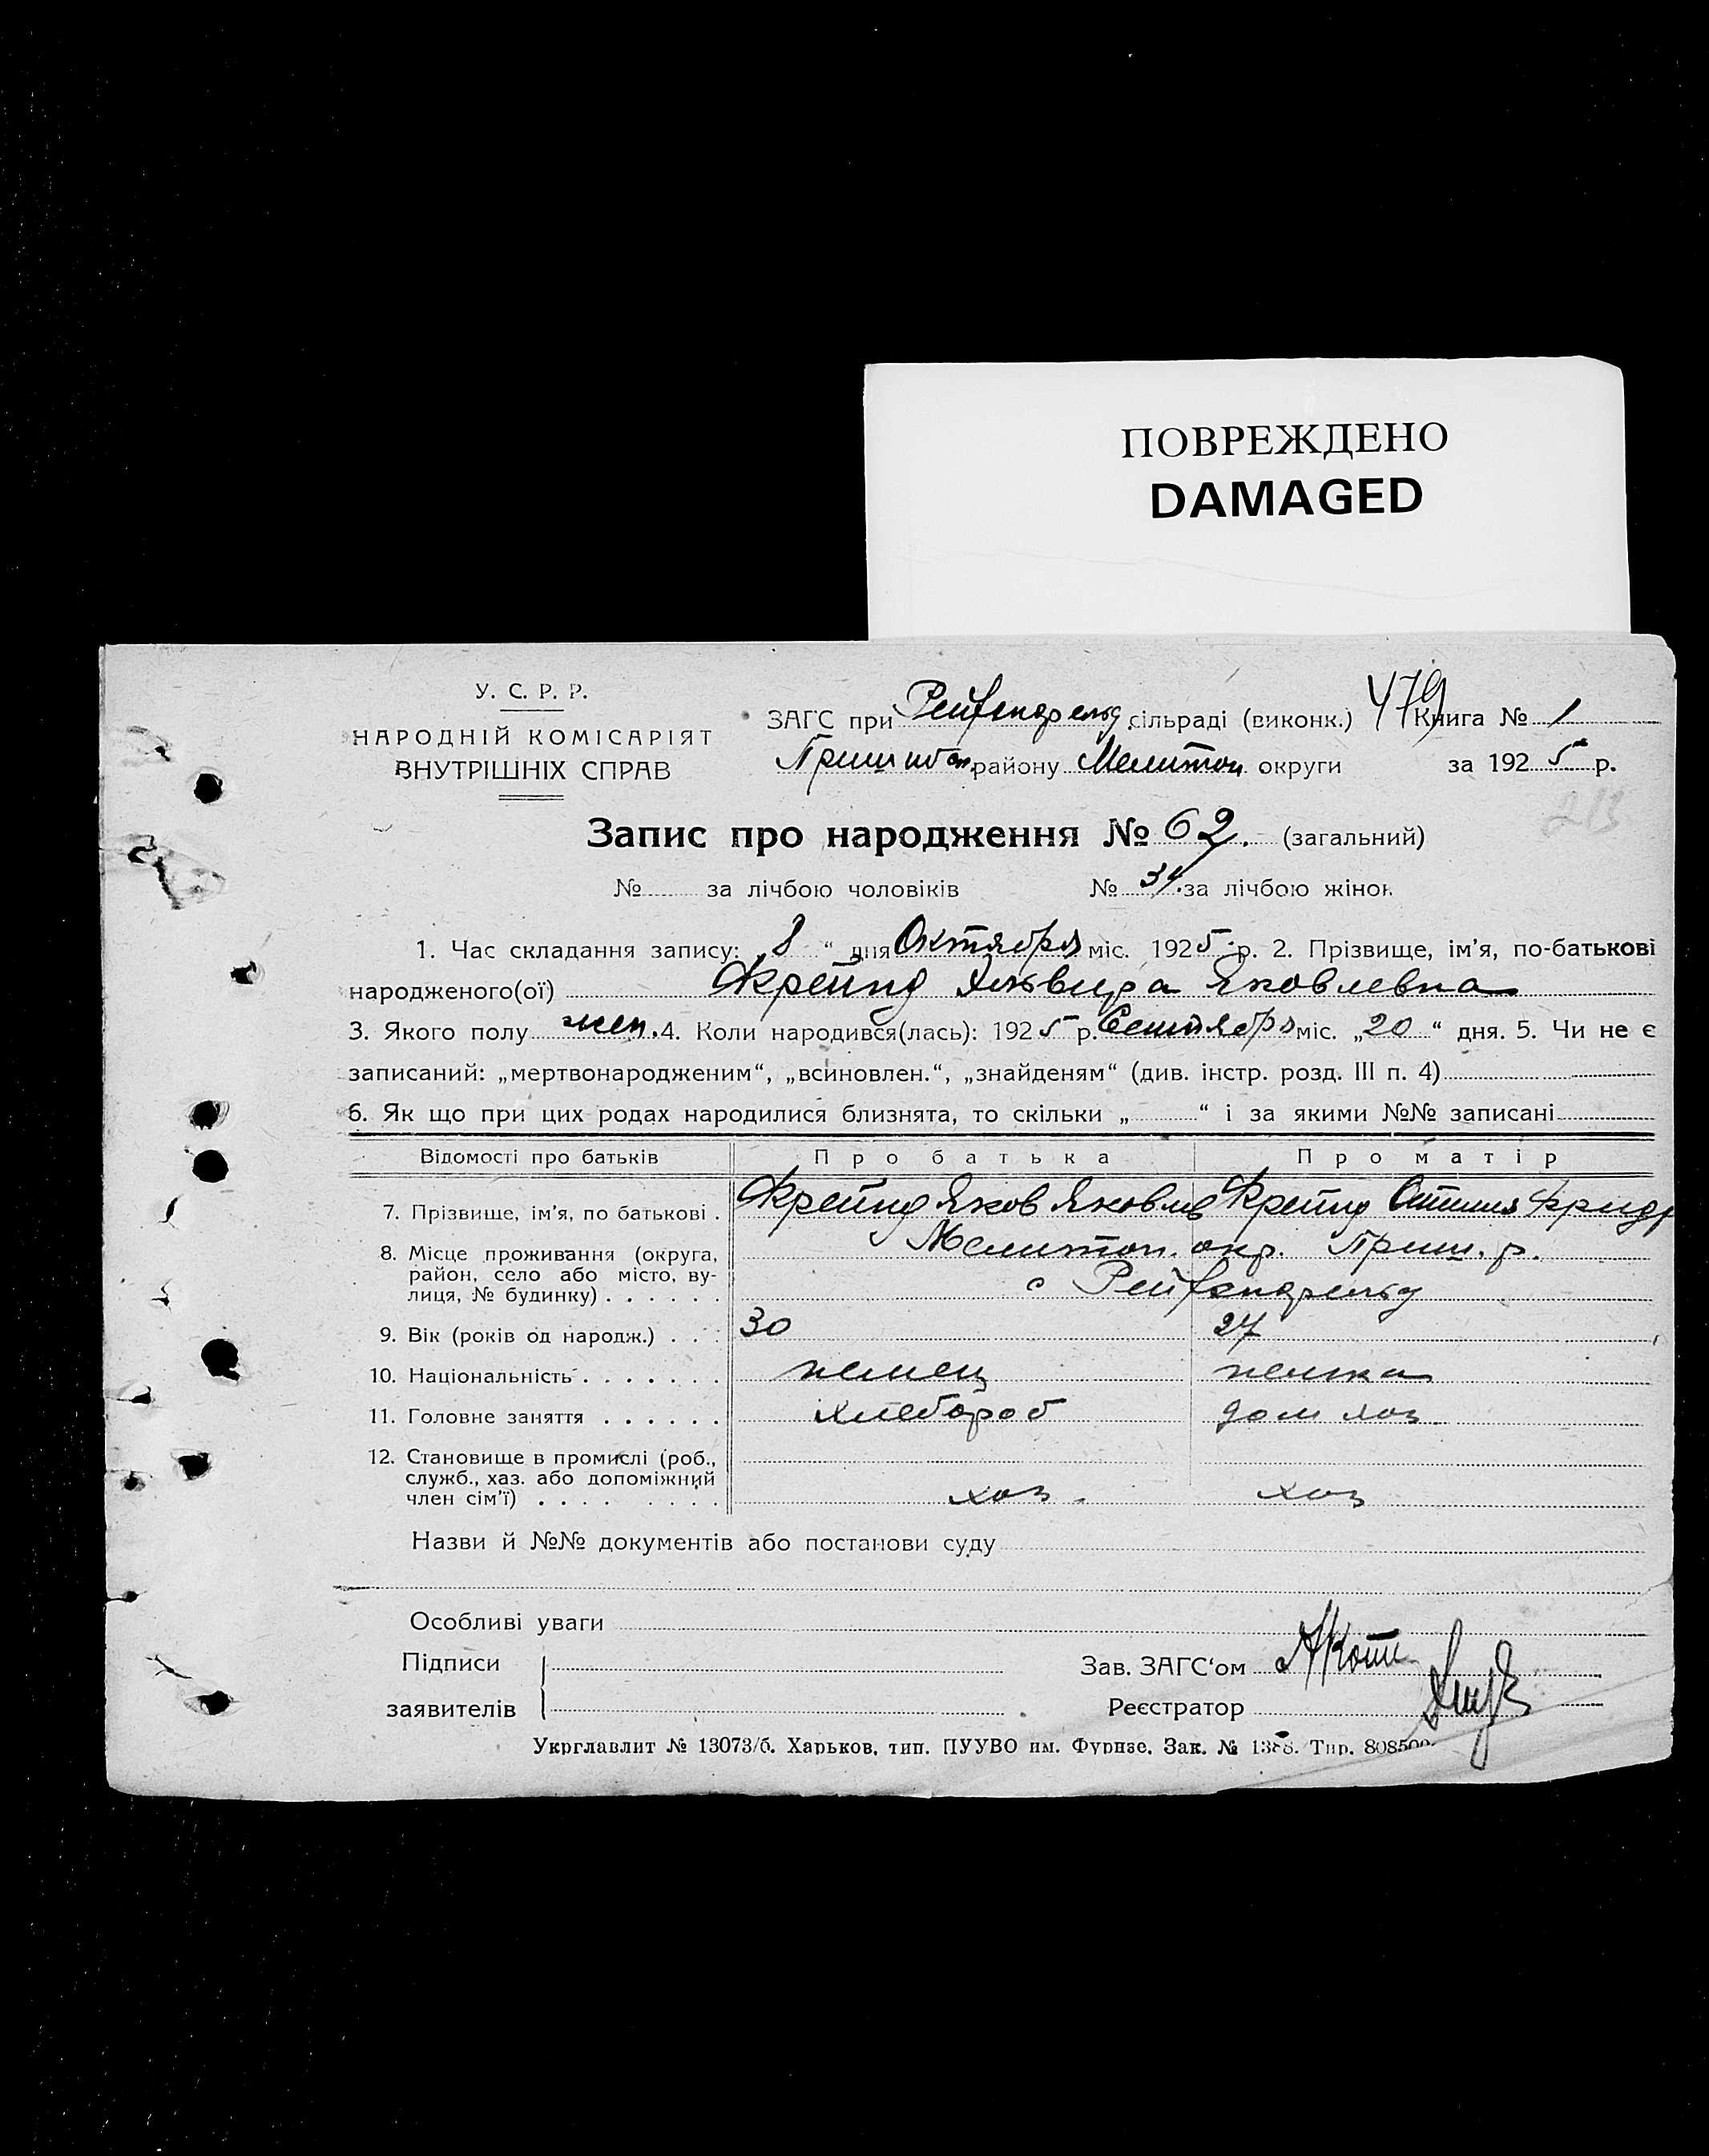 ПОВРЕЖДЕНО
DAMAGED
У. С. Р. Р.
НАРОДНІЙ КОМІСАРІЯТ
ВНУТРІШНІХ СПРАВ
ЗАГС при Рейфенфельд. сільраді (виконк.) 479 Книга № 1
Пришибск. району Мелитоп. округи за 1925 р.
213
Запис про народження № 62. (загальний)
№ за лічбою чоловіків № 34. за лічбою жінок
1. Час складання запису: „8“ дня Октября міс. 1925 р. 2. Прізвище, ім’я, по-батькові
народженого(ої) Фрейнд Эльвира Яковлевна
3. Якого полу жен. 4. Коли народився(лась): 1925 р. Сентября міс. „20“ дня. 5. Чи не є
записаний: „мертвонародженим“, „всиновлен.“, „знайденям“ (див. інстр. розд. III п. 4)
6. Як що при цих родах народилися близнята, то скільки „ “ і за якими №№ записані
Відомості про батьків Про батька Про матір
7. Прізвище, ім’я, по батькові . Фрейнд Яков Яковлев Фрейнд Фридр
8. Місце проживання (округа, Мелитоп. окр. Приш. р.
район, село або місто, ву-
лиця, № будинку) . . . . . . с Рейфенфельд
9. Вік (років од народж.) . . . 30 27
10. Національність . . . . . . . немец немка
11. Головне заняття . . . . . . хлебороб дом хоз
12. Становище в промислі (роб.,
служб., хаз. або допоміжний
член сім’ї) . . . . . . . . хоз. хоз
Назви й №№ документів або постанови суду
Особливі уваги
Підписи
заявителів
Зав. ЗАГС‘ом
Реєстратор
Укрглавлит № 13073/б. Харьков, тип. ПУУВО им. Фрунзе. Зак. № 1388. Тир. 808500